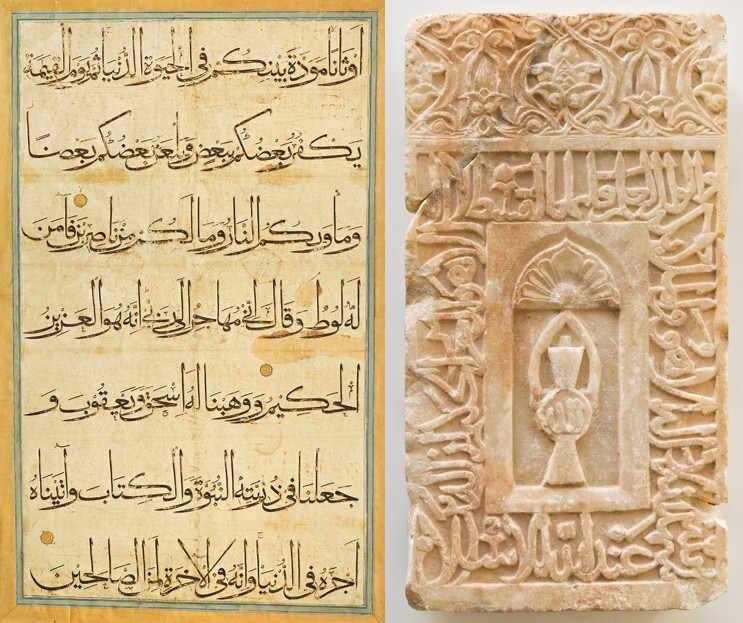 أوثانا مودة بينكم في الحيوة الدنيا ثم يوم القيمة
يكفر بعضكم ببعض ويلعن بعضكم بعضا
وماويكم النار وما لكم من ناصرين فآمن
له لوط وقال إني مهاجر إلى ربي إنه هو العزيز
الحكيم ووهبنا له اسحق ويعقوب و
جعلنا في ذريته النبوة والكتاب وآتيناه
أجره في الدنيا وإنه في الآخرة لمن الصالحين
الله
عند الله الاسلام